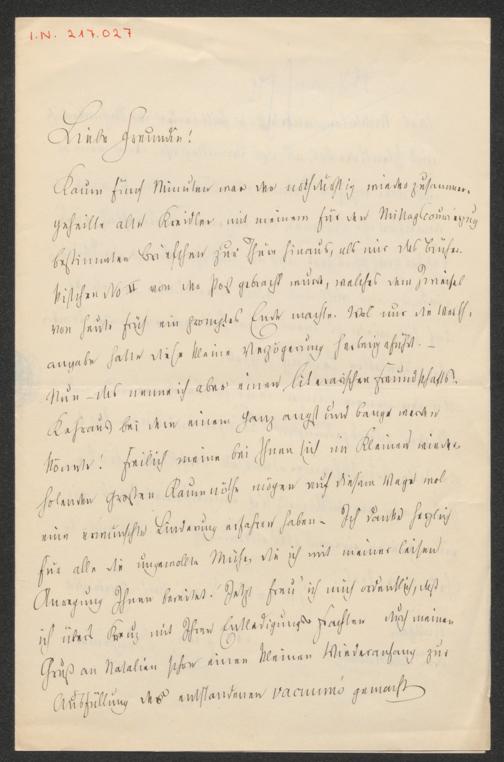 I.N. 217.027
Liebe Freundin!
Kaum fünf Minuten war der nothdürftig wieder zusammen-
geheilte alte Kreidler mit meinem für den Mittagscourierzug
bestimmten Briefchen zur Thür hinaus, als mir das Bücher-
kistchen No II von der Post gebracht wurde, welches dem Zweifel
von heute früh ein promptes Ende machte. Wol nur die Werth-
angabe hatte diese kleine Verzögerung herbeigeführt. –
Nun – das nenne ich aber einen literarischen Freundschafts-
Kehraus, bei dem einem ganz angst und bange werden
könnte! Freilich meine bei Ihnen sich im Kleinen wieder-
holenden großen Raumnöthe mögen auf diesem Wege wol
eine erwünschte Linderung erfahren haben. Ich danke herzlich
für alle die ungewollte Mühe, die ich mit meiner leisen
Anregung Ihnen bereitet. Jetzt freu' ich mich ordentlich, daß
ich übers Kreuz mit Ihren Entledigungs Frachten durch meinen
Gruß an Natalien schon einen kleinen Wiederanfang zur
Ausfüllung des entstandenen vacuums gemacht